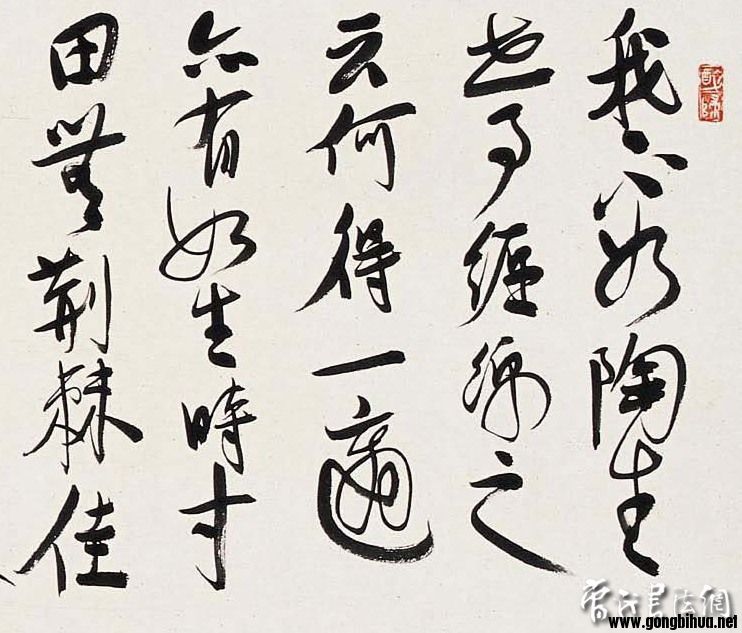 我不如陶生
世事纏綿之
云何得一適
亦有如生時寸
田無荊棘佳
书法網
www.gongbihua.net